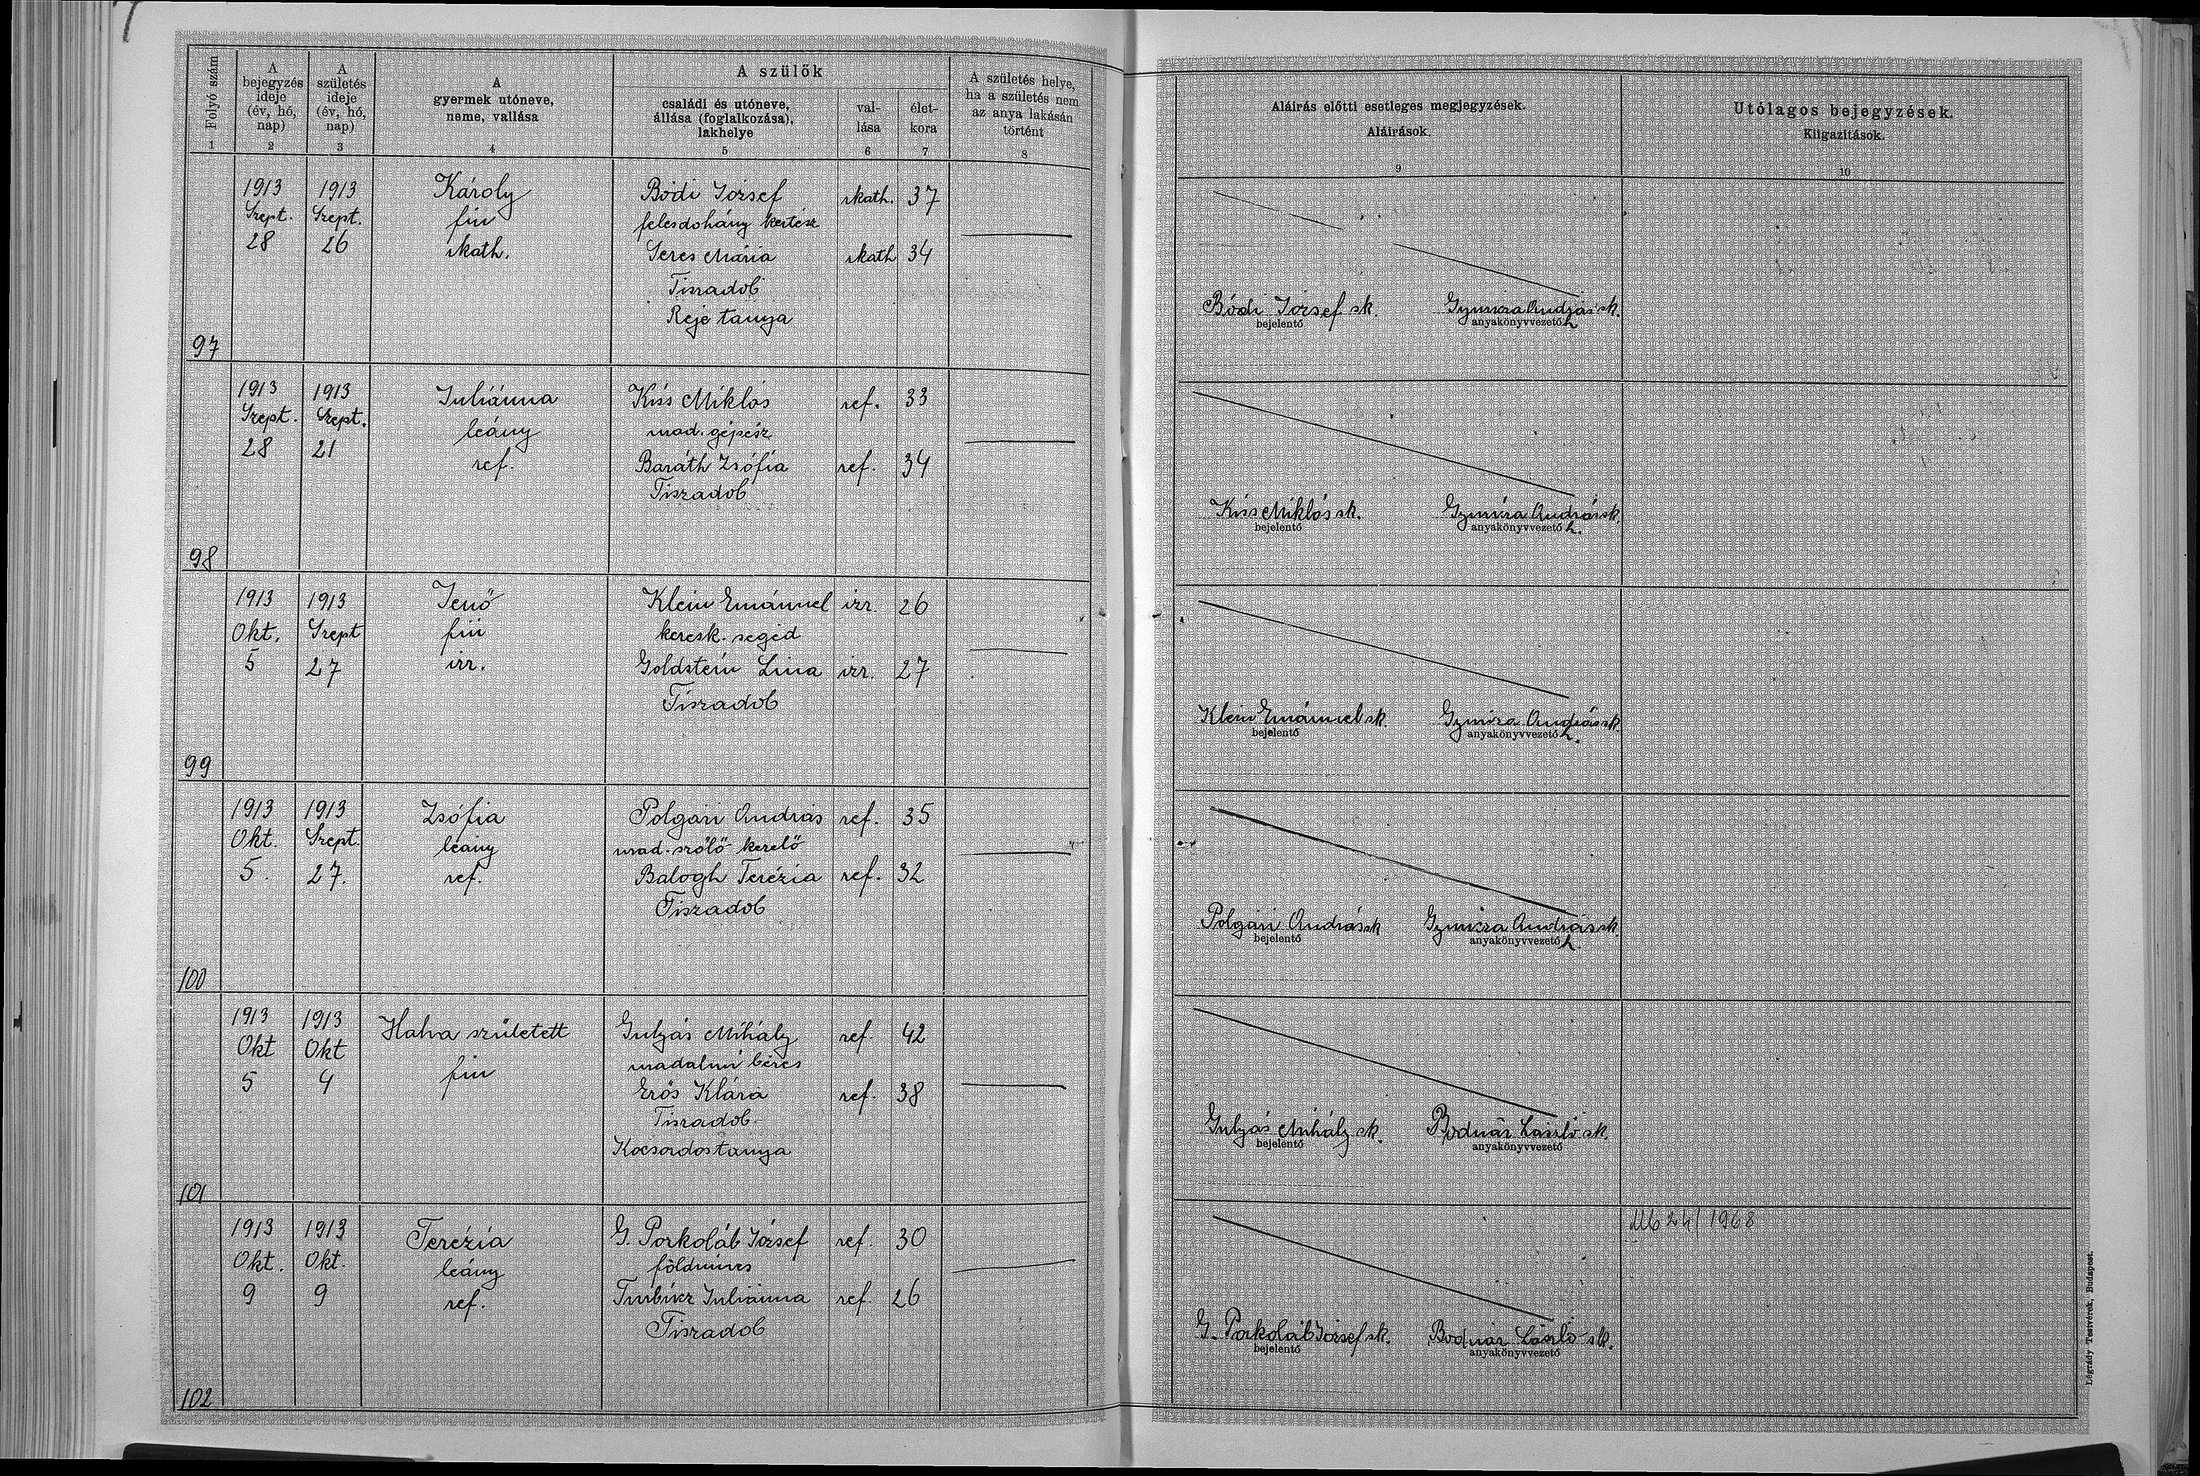 Folyó szám
A bejegyzés ideje (év, hó, nap)
A születés ideje (év, hó, nap)
A gyermek utóneve, neme, vallása
A szülők
családi és utóneve, állása (foglalkozása), lakhelye
val- lása
élet- kora
A születés helye, ha a születés nem az anya lakásán történt
Aláírás előtti esetleges megjegyzések.
Aláírások.
Utólagos bejegyzések.
Kiigazítások.
1 2 3 4 5 6 7 8 9 10
1913 1913 Károly Bódi József rkath. 37
Szept. Szept. fiu felesdohány kertész
28 26 rkath. Seres Mária rkath 34
Tiszadob
Reje tanya
97
Bódi József sk.
bejelentő
András sk.
anyakönyvvezető h
1913 1913 Juliánna Kiss Miklós ref. 33
Szept. Szept. leány urad. gépész
28 21 ref. Baráth Zsófia ref. 34
Tiszadob
98
Kiss Miklós sk.
bejelentő
András sk.
anyakönyvvezető h.
1913 1913 Jenő Klein Emánuel izr. 26
Okt. Szept fiú keresk. segéd
5 27 izr. Goldstein Lina izr. 27
Tiszadob
99
Klein Emánuel sk.
bejelentő
András sk.
anyakönyvvezető h.
1913 1913 Zsófia Polgári András ref. 35
Okt. Szept. leány urad. szőlő kerülő
5. 27. ref. Balogh Terézia ref. 32
Tiszadob
100
Polgári András sk
bejelentő
András sk.
anyakönyvvezető h
1913 1913 Halva született Gulyás Mihály ref. 42
Okt Okt fiu uradalmi béres
5 4 Erős Klára ref. 38
Tiszadob
Kocsordos tanya
101
Gulyás Mihály sk.
bejelentő
Bodnár László sk.
anyakönyvvezető
1913 1913 Terézia G. Porkoláb József ref. 30
Okt. Okt. leány földmíves
9 9 ref. Juliánna ref. 26
Tiszadob
102
G. Porkoláb József sk.
bejelentő
Bodnár László sk.
anyakönyvvezető
24/1968
Légrády Testvérek, Budapest.